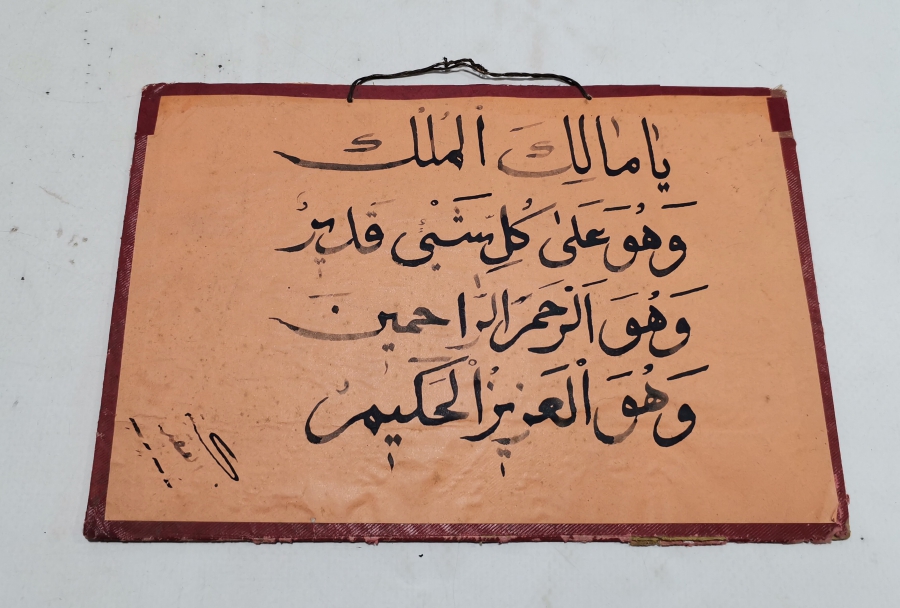 يا مالِكَ الْمُلْك
وَهُوَ عَلىٰ كُلِّ شَئْیٍ قَدیرُ
وَهُوَ اَلْرْحَمُ الرَّاحمینَ
وَهُوَ الْعَزیزُ الْحَکیمُ